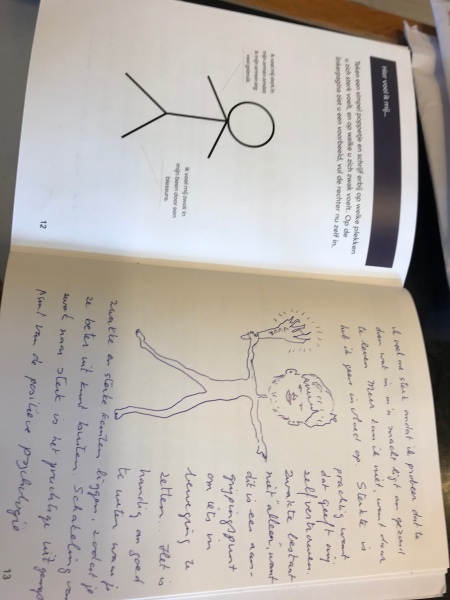 Hier voel ik mij...
Teken een simpel poppetje en schrijf erbij op welke plekken
u zich sterk voelt, en op welke u zich zwak voelt. Op de
linkerpagina ziet u een voorbeeld, vul de rechter nu zelf in.
Ik voel mij sterk in
mijn armen omdat
ik mijn armen erg
veel gebruik.
Ik voel mij zwak in
mijn been door een
blessure.
12
ik voel me sterk omdat ik probeer dat te
doen wat in m'n macht ligt om gezond
te leven Meer kan ik niet, want daar
heb ik geen invloed op. Sterkte is
prachtig want
dat geeft mij
zelfvertrouwen.
Zwakte bestaat
niet alleen, want
dit is een aan-
grijpingspunt
om iets in
beweging te
zetten... Het is
handig om goed
te weten waar je
zwakke en sterke kanten liggen, zodat je
ze beter uit kunt buiten. Schakeling van
zwak naar sterk is het prachtige
punt van de positieve psychologie
13